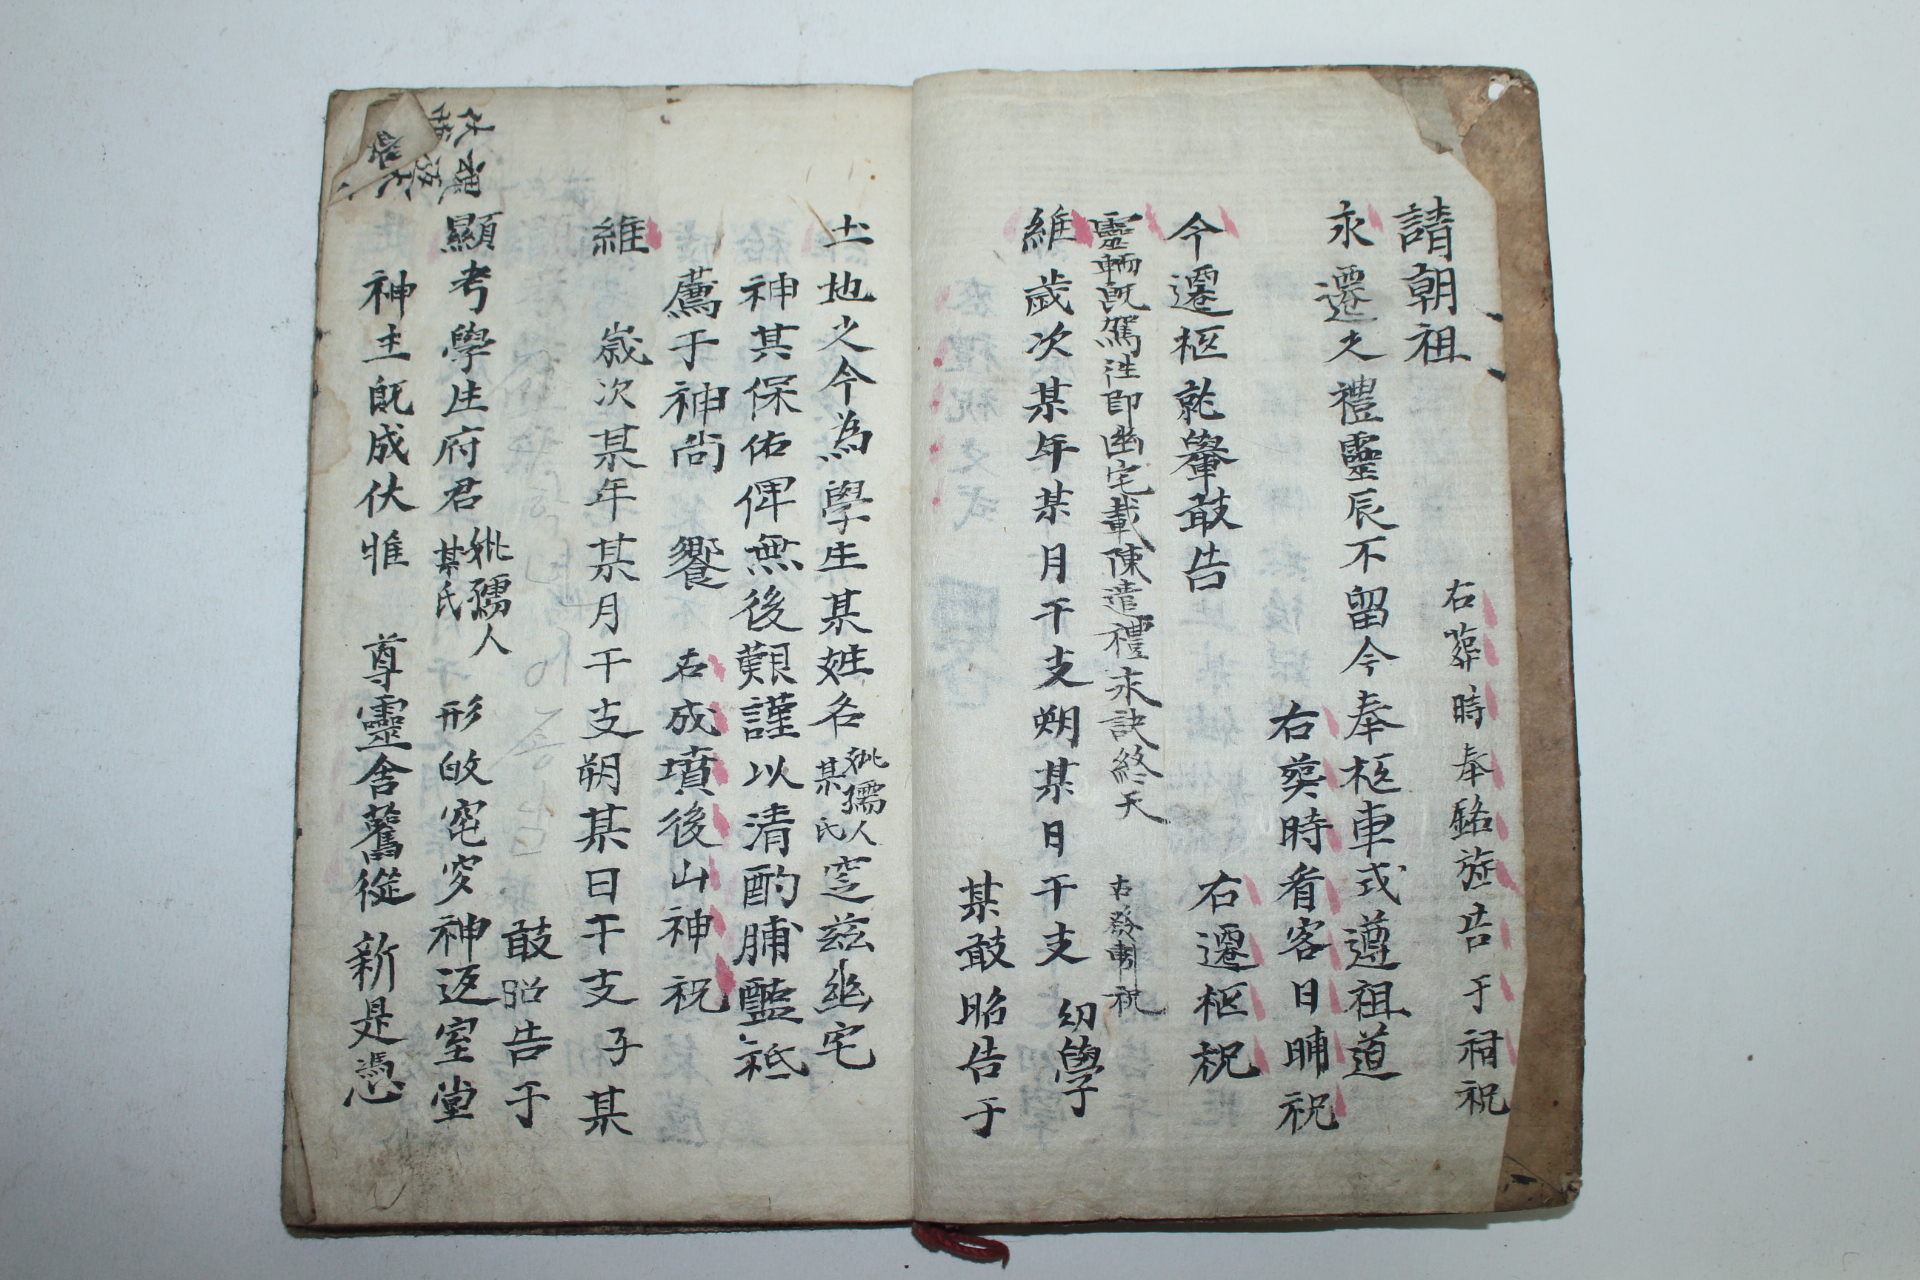 請朝祖
右葬時奉銘旌告于祠祝
永遷之禮靈辰不留今奉柩車式遵祖道
右葬時看客日晡祝
今遷柩就轝敢告
右遷柩祝
靈輀旣駕徃卽幽宅載陳遣禮永訣終天
右發靷祝
維歲次某年某月干支朔某日干支
幼學
某敢昭告于
土地之今為學生某姓名
妣孺人
某氏
窆玆幽宅
神其保佑俾無後艱謹以清酌脯醢祗
薦于神尚饗
右成墳後山神祝
維
歲次某年某月干支朔某日干支 子某
敢昭告于
顯考學生府君
妣孺人
某氏
形㱕窀穸神返室堂
神主旣成伏惟 尊靈舍舊從 新是憑